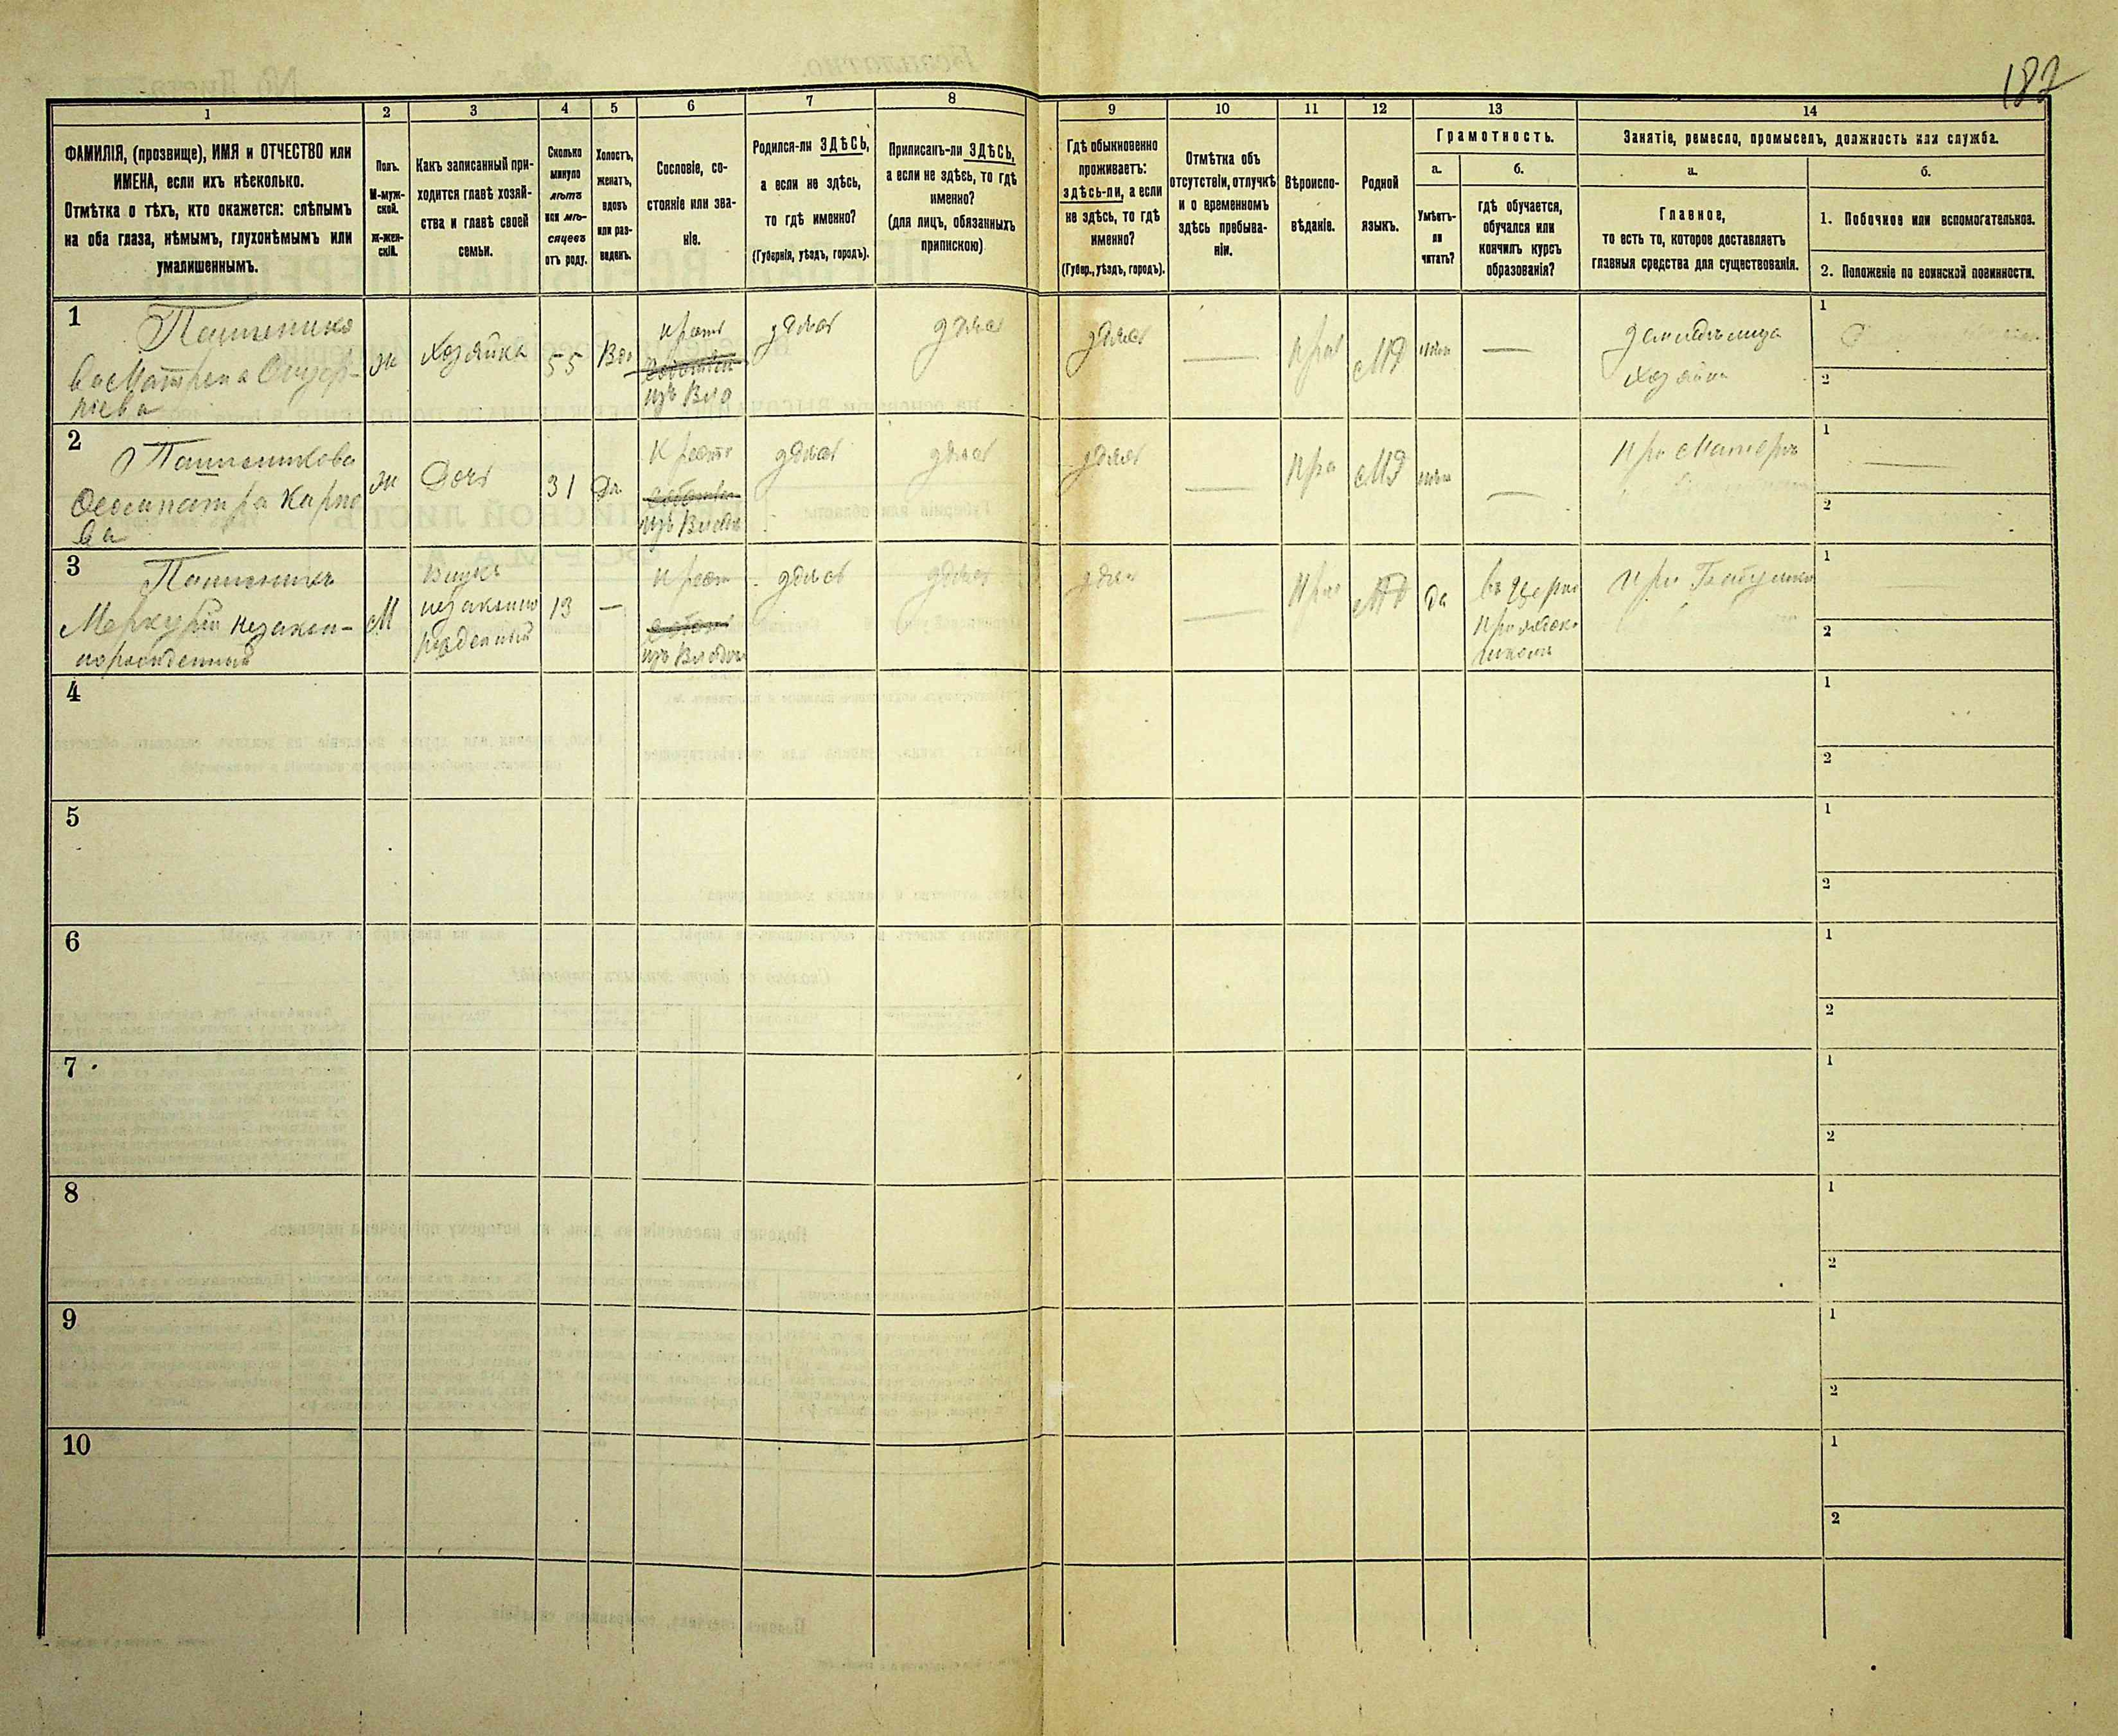 187
1
2
3
4
5
6
7
8
9
10
11
12
13
14
ФАМИЛІЯ, (прозвище), ИМЯ и ОТЧЕСТВО или
ИМЕНА, если ихъ нѣсколько.
Отмѣтка о тѣхъ, кто окажется: слѣпымъ
на оба глаза, нѣмымъ, глухонѣмымъ или
умалишеннымъ.
Полъ.
М-муж-
ской.
Ж-жен-
скій.
Какъ записанный при-
ходится главѣ хозяй-
ства и главѣ своей
семьи.
Сколько
минуло
лѣтъ
или мѣ-
сяцевъ
отъ роду.
Холостъ,
женатъ,
вдовъ
или раз-
веденъ.
Сословіе, со-
стояніе или зва-
ніе.
Родился-ли ЗДѢСЬ,
а если не здѣсь,
то гдѣ именно?
(Губернія, уѣздъ, городъ).
Приписанъ-ли ЗДѢСЬ,
а если не здѣсь, то гдѣ
именно?
(для лицъ, обязанныхъ
припискою)
Гдѣ обыкновенно
проживаетъ:
здѣсь-ли, а если
не здѣсь, то гдѣ
именно?
(Губер., уѣздъ, городъ).
Отмѣтка объ
отсутствіи, отлучкѣ
и о временномъ
здѣсь пребыва-
ніи.
Вѣроиспо-
вѣданіе.
Родной
языкъ.
Грамотность.
а.
Умѣетъ-
ли
читать?
б.
гдѣ обучается,
обучался или
кончилъ курсъ
образованія?
Занятіе, ремесло, промыселъ, должность или служба.
а.
Главное,
то есть то, которое доставляетъ
главныя средства для существованія.
б.
1. Побочное или вспомогательное.
2. Положеніе по воинской повинности.
1
ва Матрена
ж
Хозяйка
55
Вдо
крест
изъ Вла
здѣсь
здѣсь
здѣсь
пра
МД
нѣтъ
хозяйка
1
2
2
Пашенкова
Карпо
ва
ж
Дочь
31
Дѣ
Крест
изъ Владѣ
здѣсь
здѣсь
здѣсь
пра
МД
нѣтъ
при Матери
1
2
3
Меркурій незакон-
норожденный
М
Внукъ
незакон
рожденный
13
—
крест
изъ Владѣ
здѣсь
здѣсь
здѣсь
пра
да
въ Церко
приходск
школѣ
при Бабушкѣ
1
2
4
1
2
5
1
2
6
1
2
7
1
2
8
1
2
9
1
2
10
1
2